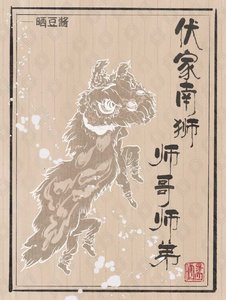 晒豆酱
伏家南狮
师哥师弟